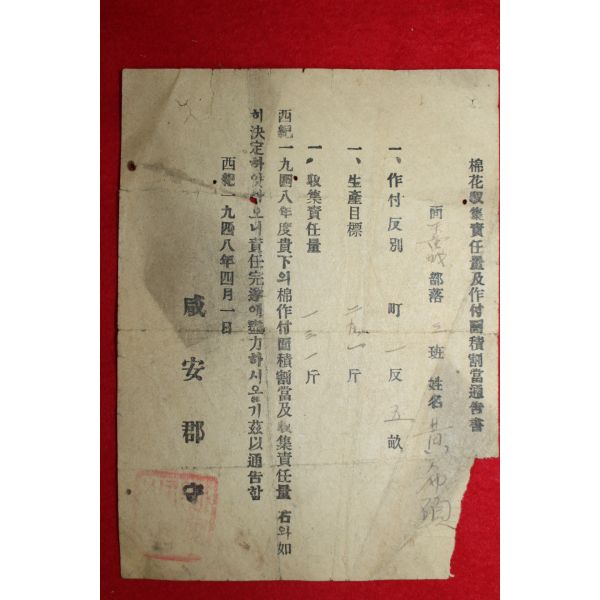 棉花收集責任量及作付面積割當通告書
面 部落 三 班 姓名 黃
一、作付反別 町 一 反 五 畝
一、生產目標 斤
一、收集責任量 一三一 斤
西紀一九四八年度貴下의棉作付面積割當及收集責任量 右와如
히決定하얏사오니責任完遂에努力하시오며기玆以通告함
西紀一九四八年四月一日
咸安郡守